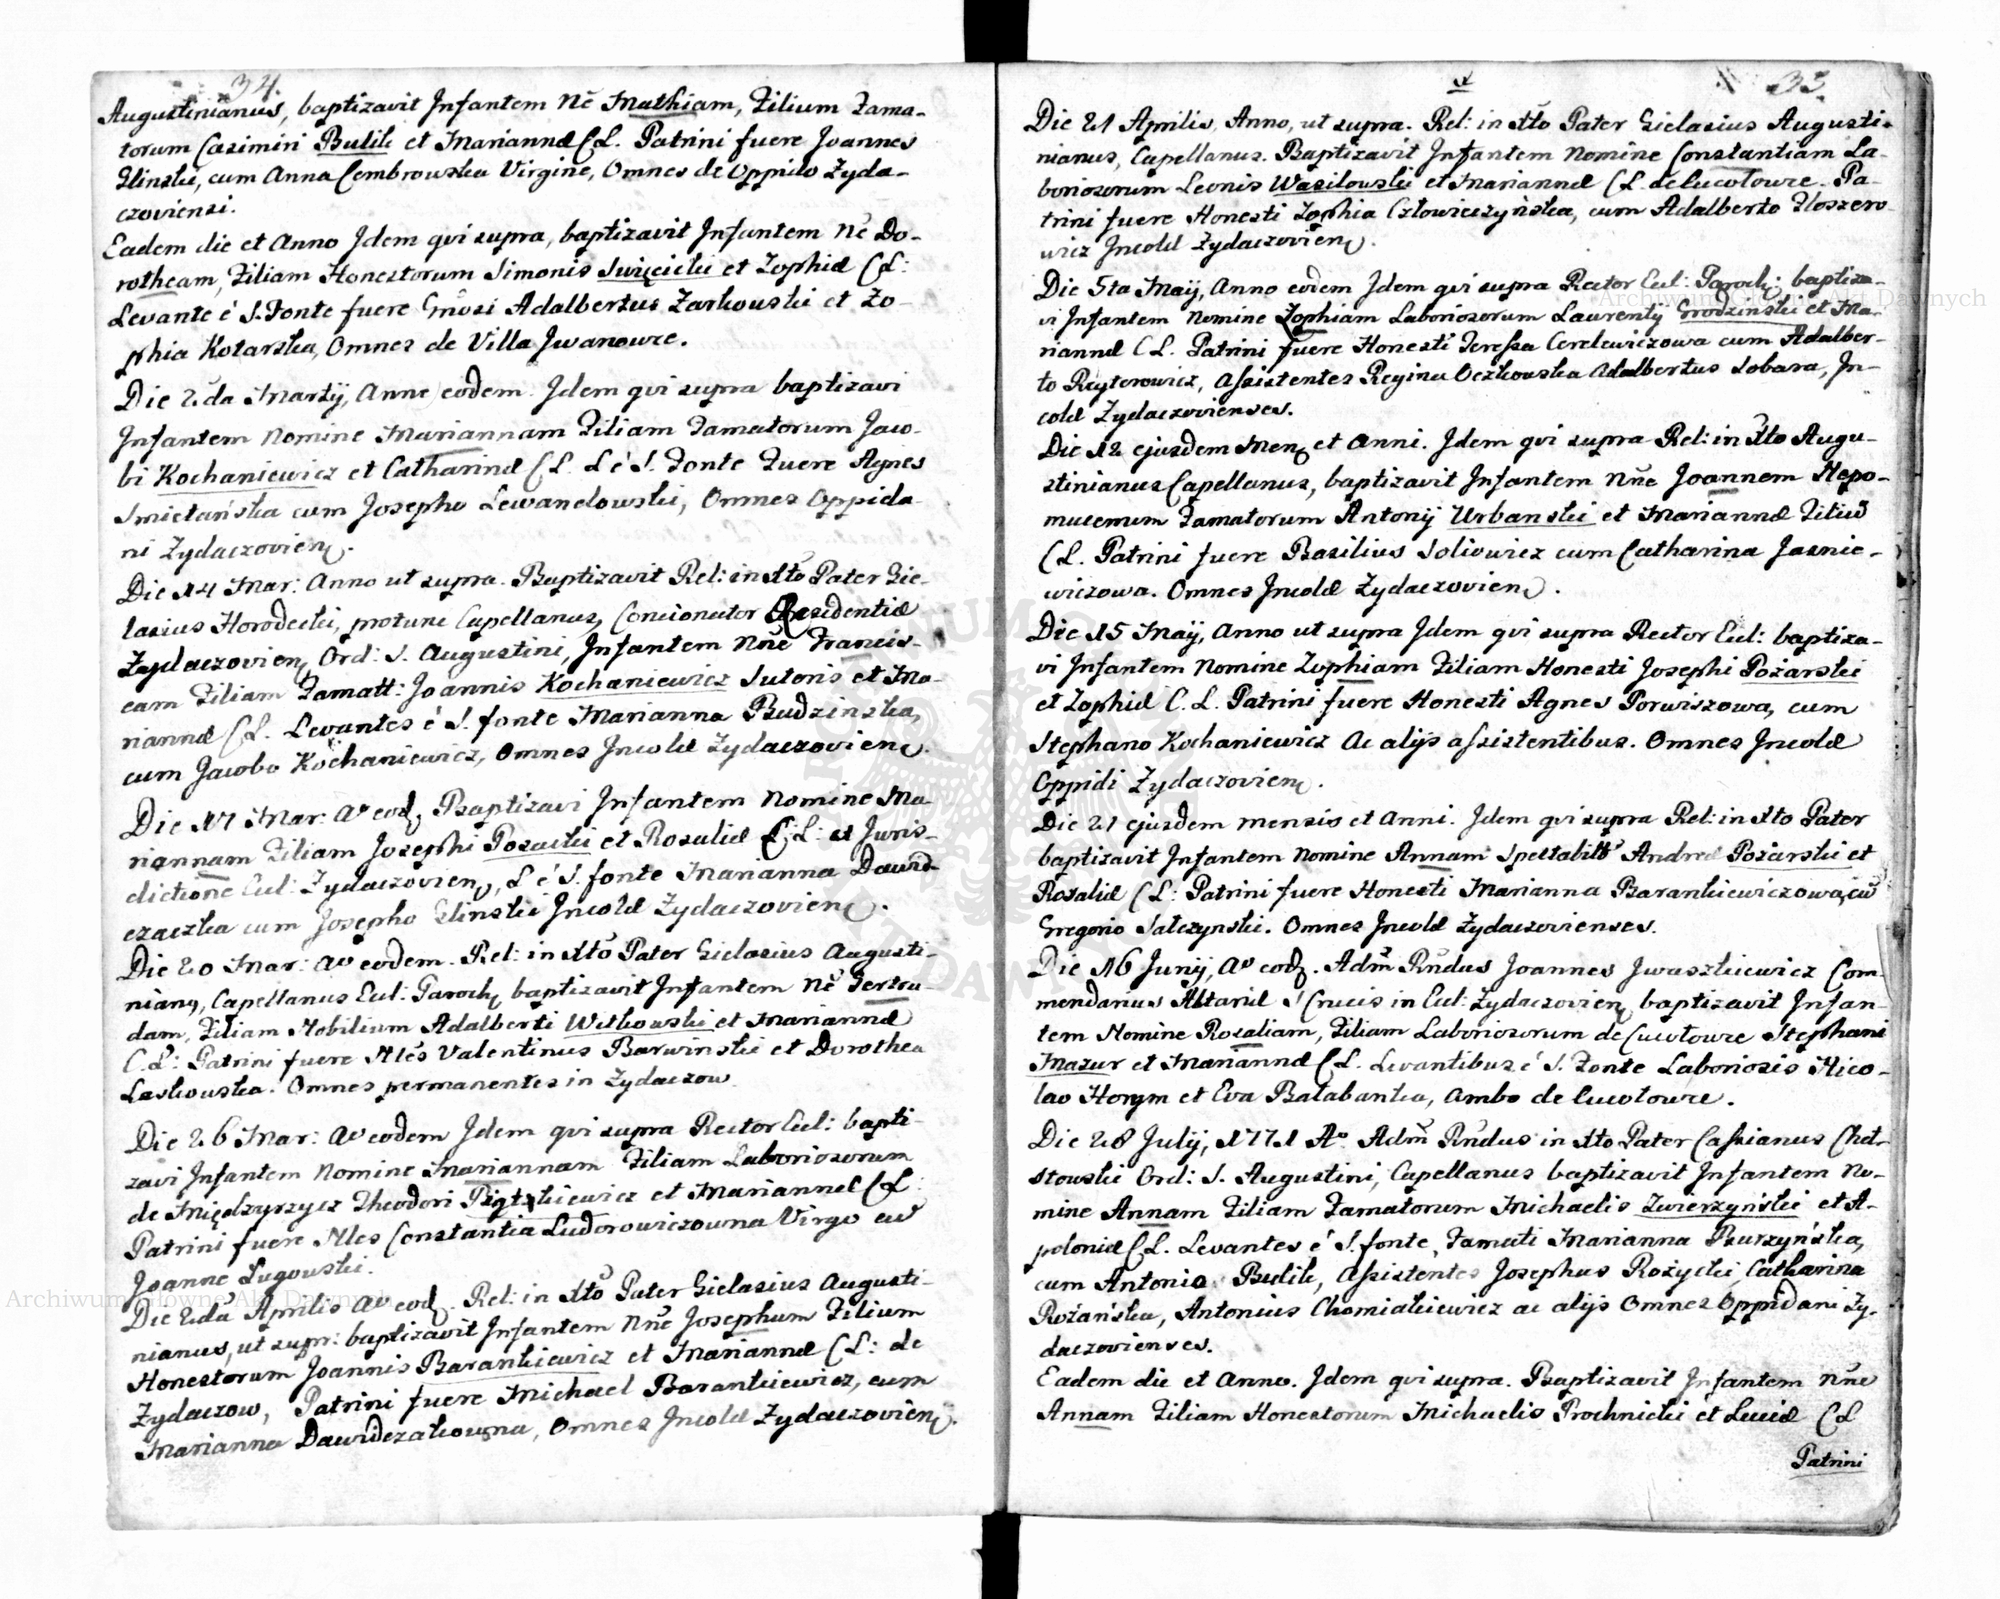 34.
Augustinianus, baptizavit Infantem Nē Mathiam, Filium Fama-
torum Casimiri Bulik et Mariannæ C L. Patrini fuere Joannes
Glinski, cum Anna Cembrowska Virgine, Omnes de Oppido Zyda-
czoviensi.
Eadem die et Anno Idem qvi supra, baptizavit Infantem Nē Do-
rotheam, Filiam Honestorum Simonis Swięcicki et Zophiæ C L:
Levante é S. Fonte fuere Gnōsi Adalbertus Zarkowski et Zo-
phia Kotarska, Omnes de Villa Jwanowce.
Die 2da Martij, Anno eodem. Idem qvi supra baptizavi
Infantem Nomine Mariannam Filiam Famatorum Jaco-
bi Kochaniewicz et Catharinæ C L. L é S. Fonte Fuere Agnes
Smietańska cum Josepho Lewandowski, Omnes Oppida-
ni Zydaczovien.
Die 14 Mar: Anno ut supra. Baptizavit Rel: in Xto Pater Gie-
lasius Horodecki, protunc Capellanus, Concionator Residentiæ
Zydaczovien, Ord: S. Augustini, Infantem Nñe Francis-
cam Filiam Famatt: Joannis Kochaniewicz Sutoris et Ma-
riannæ C L. Levantes é S. fonte Marianna Budzinska,
cum Jacobo Kochaniewicz, Omnes Incolæ Zydaczovien.
Die 17 Mar: Aº eod, Baptizavi Infantem Nomine Ma-
riannam Filiam Josephi Posacki et Rosaliæ C L: ex Juris-
dictione Eccl: Zydaczovien, L é S. fonte Marianna Dawid-
czaczka cum Josepho Glinski Incolæ Zydaczovien.
Die 20 Mar: Aº eodem. Rel: in Xto Pater Gielasius Augusti-
nianus, Capellanus Eccl: Paroch, baptizavit Infantem Nē Gertru-
dam, Filiam Nobilium Adalberti Witkowski et Mariannæ
C. L: Patrini fuere Nles Valentinus Barwinski et Dorothea
Laskowska. Omnes permanentes in Zydaczow
Die 26 Mar: Aº eodem Idem qvi supra Rector Eccl: bapti-
zavi Infantem Nomine Mariannam Filiam Laboriosorum
de Międzyrzycz Theodori Piątkiewicz et Mariannæ C L:
Patrini fuere Nles Constantia Ludorowiczowna Virgo cū
Joanne Lugowski.
Die 2dā Aprilis Aº eod. Rel: in Xto Pater Gielasius Augusti-
nianus, ut supr: baptizavit Infantem Nñe Josephum Filium
Honestorum Joannis Barankiewicz et Mariannæ C L: de
Zydaczow, Patrini fuere Michael Barankiewicz, cum
Marianna Dawidczakowna, Omnes Incolæ Zydaczovien.
Die 21 Aprilis, Anno, ut supra. Rel: in Xto Pater Gielasius Augusti-
nianus, Capellanus. Baptizavit Infantem Nomine Constantiam La-
boriosorum Leonis Wasilowski et Mariannæ C L. de Cucołowce. Pa-
trini fuere Honesti Zophia Człowieczyńska, cum Adalberto Floszero-
wicz Incolæ Zydaczovien.
Die 5ta Maij, Anno eodem Idem qvi supra Rector Eccl: Paroch: baptiza-
vi Infantem Nomine Zophiam Laboriosorum Laurentij Grodzinski et Ma-
riannæ C L. Patrini fuere Honesti Teressa Cerelewiczowa cum Adalber-
to Reyterowicz, Assistentes Regina Oczkowska Adalbertus Sobara, In-
colæ Zydaczovienses.
Die 12 ejusdem Men et Anni. Idem qvi supra Rel: in Xto Augu-
stinianus Capellanus, baptizavit Infantem Nñe Joannem Nepo-
mucenum Famatorum Antonij Urbanski et Mariannæ Filiū
C L. Patrini fuere Basilius Soliowicz cum Catharina Jasnie-
wiczowa. Omnes Incolæ Zydaczovien.
Die 15 Maij, Anno ut supra Idem qvi supra Rector Eccl: baptiza-
vi Infantem Nomine Zophiam Filiam Honesti Josephi Pożarski
et Zophiæ C. L. Patrini fuere Honesti Agnes Porwiszowa, cum
Stephano Kochaniewicz Ac alijs assistentibus. Omnes Incolæ
Oppidi Zydaczovien.
Die 21 ejusdem mensis et Anni. Idem qvi supra Rel: in Xto Pater
baptizavit Infantem Nomine Annam Spectabilis Andreæ Pożarski et
Rosaliæ C L: Patrini fuere Honesti Marianna Barankiewiczowa, cū
Gregorio Salczynski. Omnes Incolæ Zydaczovienses.
Die 16 Junij, Aº eod. Adm̄ Rn̄dus Joannes Jwaszkiewicz Com-
mendarius Altariæ S Crucis in Eccl: Zydaczovien baptizavit Infan-
tem Nomine Rosaliam, Filiam Laboriosorum de Cucołowce Stephani
Mazur et Mariannæ C L. Levantibus é S. Fonte Laboriosis Nico-
lao Horym et Eva Bałabanka, Ambo de Cucołowce.
Die 28 Julij, 1771 Aº Adm̄ Rn̄dus in Xto Pater Cassianus Cheł-
stowski Ord: S. Augustini, Capellanus baptizavit Infantem No-
mine Annam Filiam Famatorum Michaelis Zwierzyński et A-
poloniæ C L. Levantes é S. fonte, Famati Marianna Burzyńska,
cum Antonio Bulik, Assistentes Josephus Rożycki Catharina
Rożańska, Antonius Chomiakiewicz ac alijs Omnes Oppidani Zy-
daczovienses.
Eadem die et Anno. Idem qvi supra. Baptizavit Infantem Nñe
Annam Filiam Honestorum Michaelis Prochnicki et Luciæ C L
Patrini
Archiwum Główne Akt Dawnych
Archiwum Główne Akt Dawnych